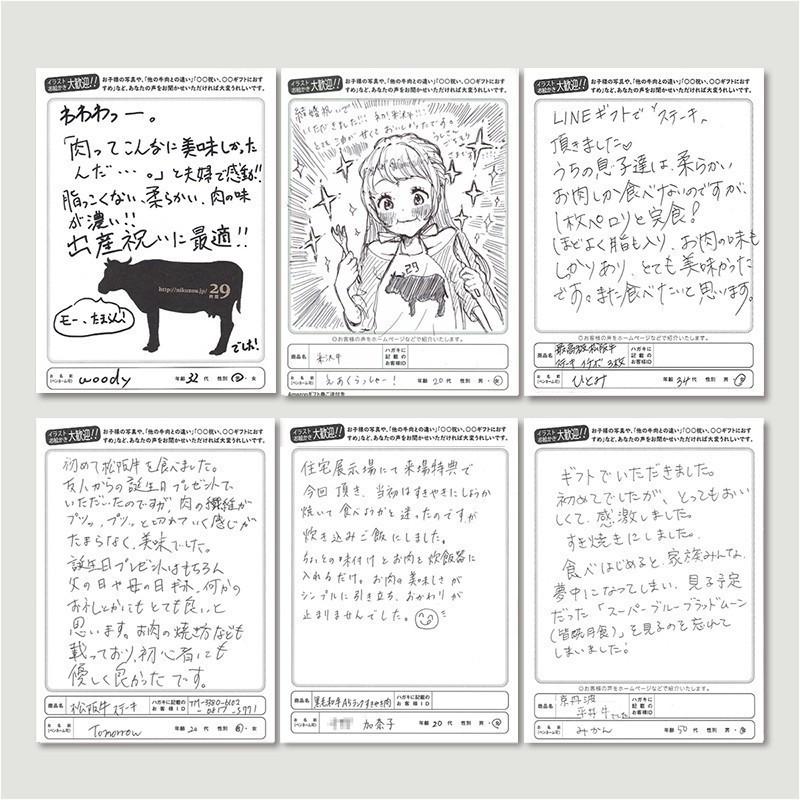 イラスト お絵かき 大歓迎!! お子様の写真や、「他の牛肉との違い」「〇〇祝い、〇〇ギフトにおすすめ」など、あなたの声をお聞かせいただければ大変うれしいです。
わわわっー。
「肉ってこんなに美味しかったんだ…。」と夫婦で感動!!
脂っこくない、柔らかい、肉の味が濃い!!
出産祝いに最適!!
http://nikuzou.jp/ 29
モー、たまらん!
でしょ!
お名前(ペンネーム可) woody 年齢 32代 性別 男・女
イラスト お絵かき 大歓迎!! お子様の写真や、「他の牛肉との違い」「〇〇祝い、〇〇ギフトにおすすめ」など、あなたの声をお聞かせいただければ大変うれしいです。
結婚祝いで
いただきました!!!
29
○お客様の声をホームページなどで紹介いたします。
商品名 米沢牛 ハガキに記載のお客様ID
お名前(ペンネーム可) えあくらっしゃー! 年齢 20代 性別 男・女
イラスト お絵かき 大歓迎!! お子様の写真や、「他の牛肉との違い」「〇〇祝い、〇〇ギフトにおすすめ」など、あなたの声をお聞かせいただければ大変うれしいです。
LINEギフトで"ステーキ"
頂きました♡
うちの息子達は、柔らかい
お肉しか食べないのですが、
1枚ペロリと完食!
ほどよく脂も入り、お肉の味も
しっかりあり、とても美味かった
です。また食べたいと思います。
○お客様の声をホームページなどで紹介いたします。
商品名 最高級松阪牛 ステーキ イチボ 3枚 ハガキに記載のお客様ID
お名前(ペンネーム可) ひとみ 年齢 34代 性別 男・女
イラスト お絵かき 大歓迎!! お子様の写真や、「他の牛肉との違い」「〇〇祝い、〇〇ギフトにおすすめ」など、あなたの声をお聞かせいただければ大変うれしいです。
初めて松阪牛を食べました。
友人からの誕生日プレゼントで
いただいたのですが、肉の繊維が
プツッ、プツッと切れていく感じが
たまらなく、美味でした。
誕生日プレゼントはもちろん
父の日や母の日ギフト、何かの
お礼とかにもとても良いと
思います。お肉の焼き方なども
載っており、初心者にも
優しく良かったです。
商品名 松阪牛ステーキ ハガキに記載のお客様ID
お名前(ペンネーム可) Tomorrow 年齢 20代 性別 男・女
イラスト お絵かき 大歓迎!! お子様の写真や、「他の牛肉との違い」「〇〇祝い、〇〇ギフトにおすすめ」など、あなたの声をお聞かせいただければ大変うれしいです。
住宅展示場にて来場特典で
今回頂き、当初はすきやきにしようか
焼いて食べようかと迷ったのですが
炊き込みご飯にしました。
ちょっとの味付けとお肉を炊飯器に
入れるだけ。お肉の美味しさが
シンプルに引き立ち、おかわりが
止まりませんでした。
商品名 黒毛和牛A5ランクすきやき肉 ハガキに記載のお客様ID
お名前(ペンネーム可) 加奈子 年齢 20代 性別 男・女
イラスト お絵かき 大歓迎!! お子様の写真や、「他の牛肉との違い」「〇〇祝い、〇〇ギフトにおすすめ」など、あなたの声をお聞かせいただければ大変うれしいです。
ギフトでいただきました。
初めてでしたが、とってもおいしくて、感激しました。
すき焼きにしました。
食べはじめると、家族みんな、
夢中になってしまい、見る予定
だった「スーパーブルーブラッドムーン
(皆既月食)」を見るのを忘れて
しまいました!
○お客様の声をホームページなどで紹介いたします。
商品名 京丹波 平井牛でした ハガキに記載のお客様ID
お名前(ペンネーム可) みかん 年齢 50代 性別 男・女